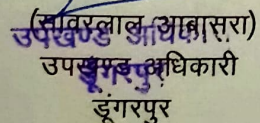 (सांवरलाल आबासरा)
उपखण्ड अधिकारी
उपखण्ड अधिकारी
डूंगरपुर
डूंगरपुर